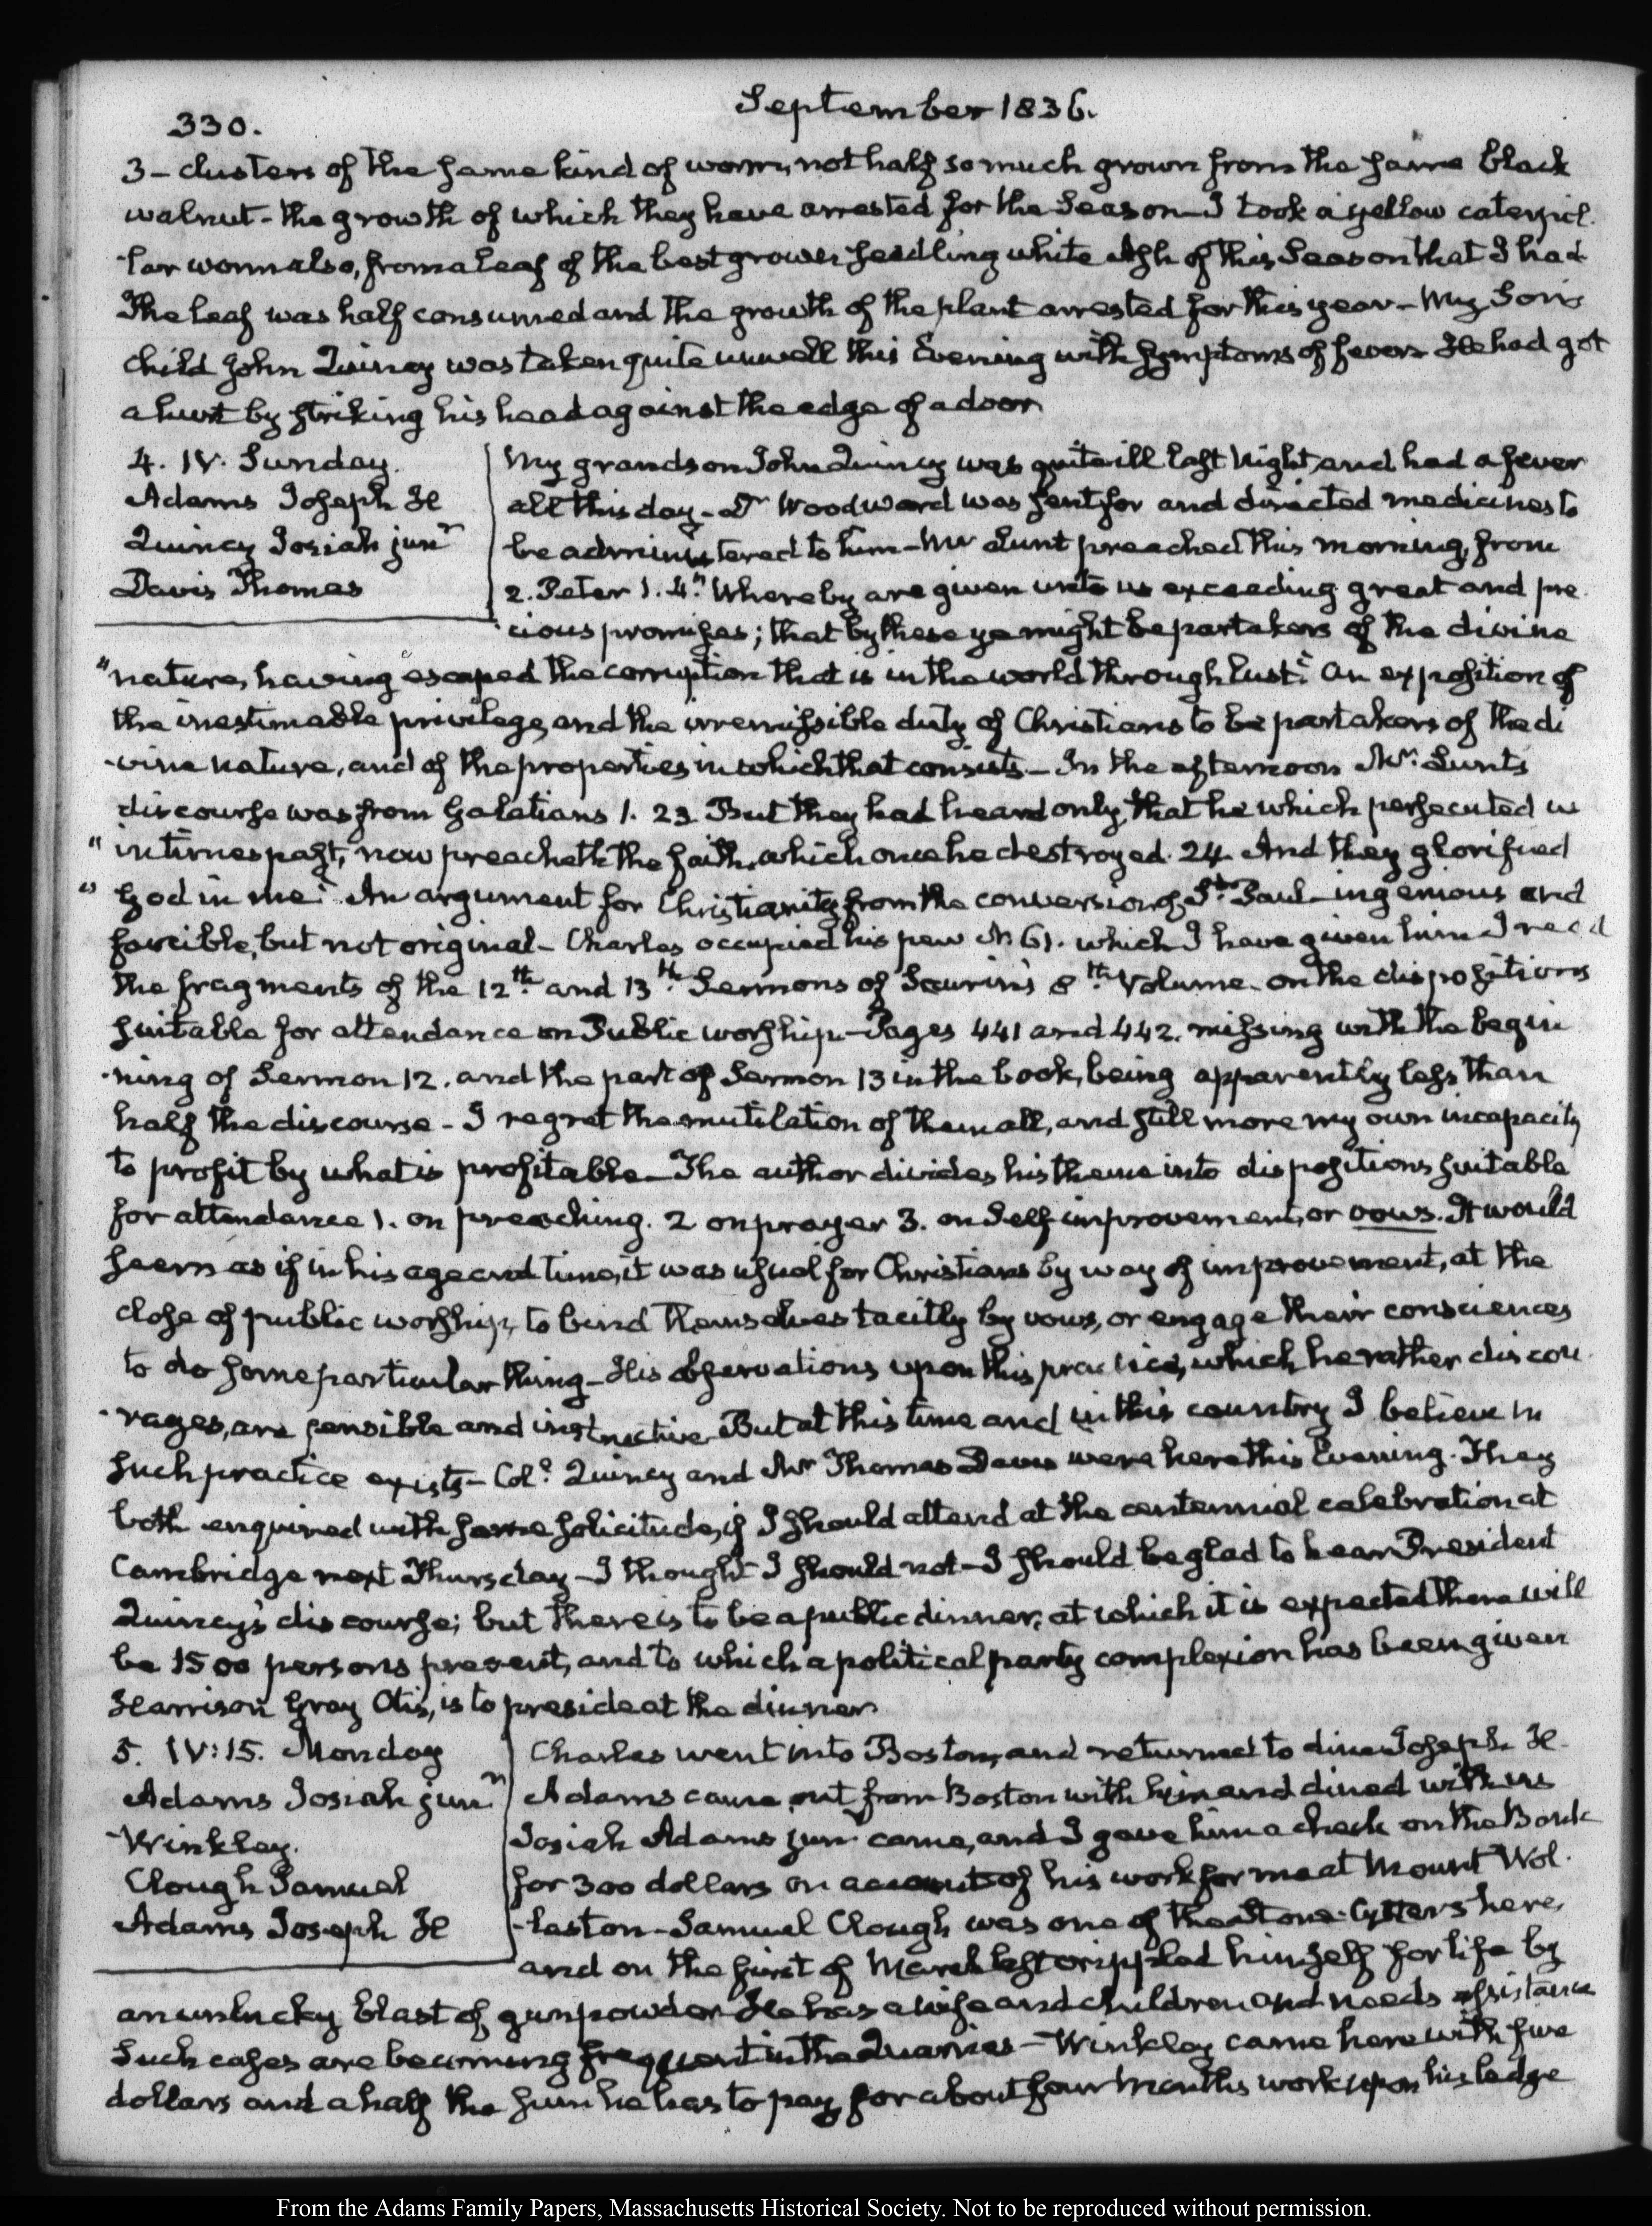 330.
September 1836.
3 - clusters of the same kind of worm, not half so much grown from the same black
walnut - the growth of which they have arrested for the Season - I took a yellow caterpil-
-lar worm also, from a leaf of the best grown seedling white Ash of this Season that I had
The leaf was half consumed and the growth of the plant arrested for this year - My Son's
child John Quincy was taken quite unwell this Evening with symptoms of fever He had got
a hurt by striking his head against the edge of a door
4. IV. Sunday.
Adams Joseph H
Quincy Josiah junr
Davis Thomas
My grandson John Quincy was quite ill last Night, and had a fever
all this day - Dr Woodward was sent for and directed medicines to
be administered to him - Mr Lunt preached this morning, from
2. Peter 1. 4. "Whereby are given unto us exceeding great and pre-
"cious promises; that by these ye might be partakers of the divine
"nature, having escaped the corruption that is in the world through lust." An exposition of
the inestimable privilege, and the irremissible duty of Christians to be partakers of the di
-vine nature, and of the properties in which that consists - In the afternoon Mr. Lunt's
discourse was from Galatians 1. 23 But they had heard only, that he which persecuted us
" in times past, now preacheth the faith, which once he destroyed. 24. And they glorified
" God in me." An argument for Christianity from the conversion of St. Paul - ingenious and
forcible, but not original - Charles occupied his pew N. 61. which I have given him I read
the fragments of the 12th. and 13th. Sermons of Saurin's 8th. Volume - on the dispositions
suitable for attendance on Public worship - Pages 441 and 442. missing with the begin
-ning of Sermon 12. and the part of Sermon 13 in the book, being apparently less than
half the discourse - I regret the mutilation of them all, and still more my own incapacity
to profit by what is profitable - The author divides his theme into dispositions suitable
for attendance 1. on preaching. 2 on prayer 3. on Self improvement, or vows. It would
seem as if in his age and time, it was usual for Christians by way of improvement, at the
close of public worship, to bind themselves tacitly by vows, or engage their consciences
to do some particular thing - His observations upon this practice, which he rather discou
-rages, are sensible and instructive But at this time and in this country I believe no
such practice exists - Col. Quincy and Mr Thomas Davis were here this Evening. They
both enquired with some solicitude, if I should attend at the centennial celebration at
Cambridge next Thursday - I thought I should not - I should be glad to hear President
Quincy's discourse; but there is to be a public dinner, at which it is expected there will
be 1500 persons present, and to which a political party complexion has been given
Harrison Gray Otis, is to preside at the dinner
5. IV:15. Monday
Adams Josiah junr
Winkley.
Clough Samuel
Adams Joseph H
Charles went into Boston, and returned to dine Joseph H.
Adams came out from Boston with him and dined with us
Josiah Adams junr came, and I gave him a check on the Bank
for 300 dollars on account of his work for me at Mount Wol-
-laston - Samuel Clough was one of the Stone-Cutters here,
and on the first of March last crippled himself for life by
an unlucky blast of gunpowder He has a wife and children and needs assistance
Such cases are becoming frequent in the Quarries - Winkley came here with five
dollars and a half the sum he has to pay for about four Months work upon his ledge
From the Adams Family Papers, Massachusetts Historical Society. Not to be reproduced without permission.